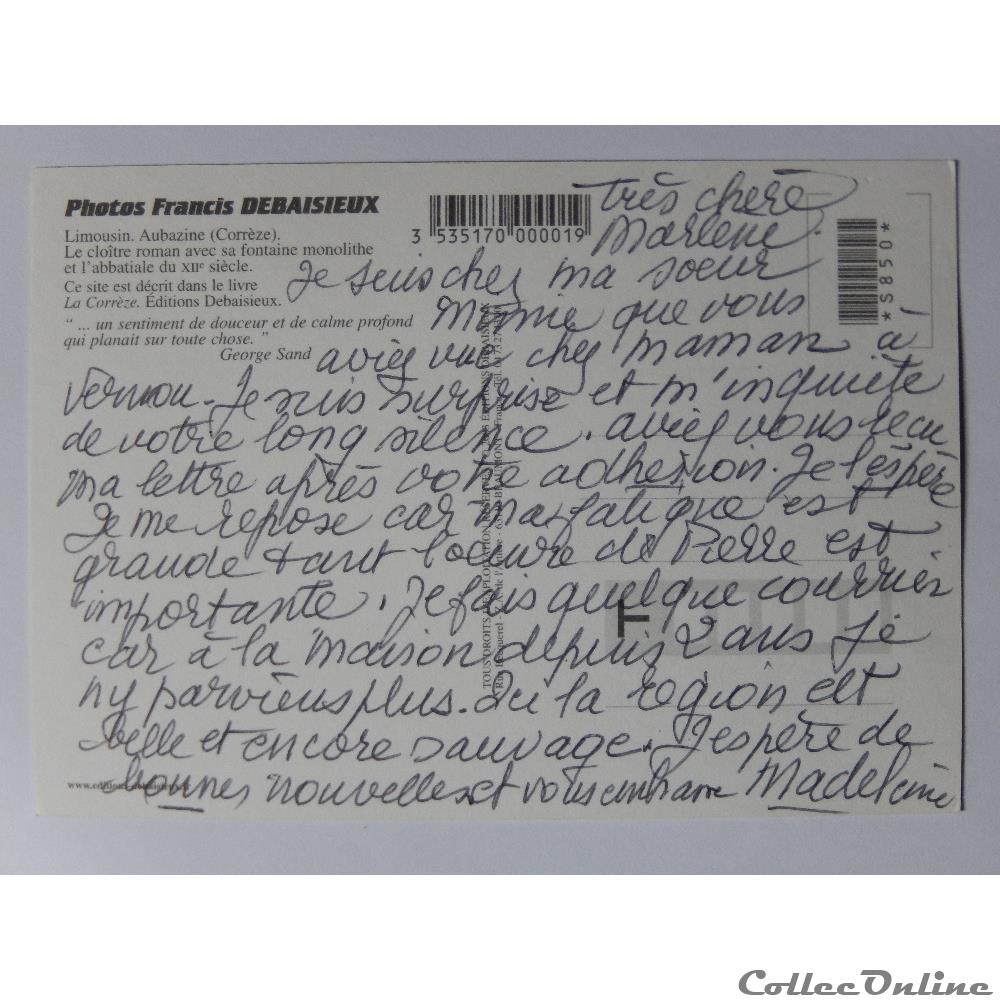 Photos Francis DEBAISIEUX
Limousin. Aubazine (Corrèze).
Le cloître roman avec sa fontaine monolithe
et l'abbatiale du XIIe siècle.
Ce site est décrit dans le livre
La Corrèze. Éditions Debaisieux.
" ... un sentiment de douceur et de calme profond
qui planait sur toute chose. "
George Sand
3 535170 000019
*S850*
très chère
Marlène.
Je suis chez ma soeur
Mimie que vous
aviez vue chez maman à
Vernou. Je suis surprise et m'inquiète
de votre long silence. aviez vous reçu
ma lettre après votre adhésion. Je l'espère
Je me repose car ma fatigue est
grande tant l'oeuvre de Pierre est
importante. Je fais quelque courrier
car à la maison depuis 2 ans je
n'y parviens plus. Ici la région est
belle et encore sauvage. J'espère de
bonnes nouvelles et vous embrasse Madeleine
T
CollecOnline